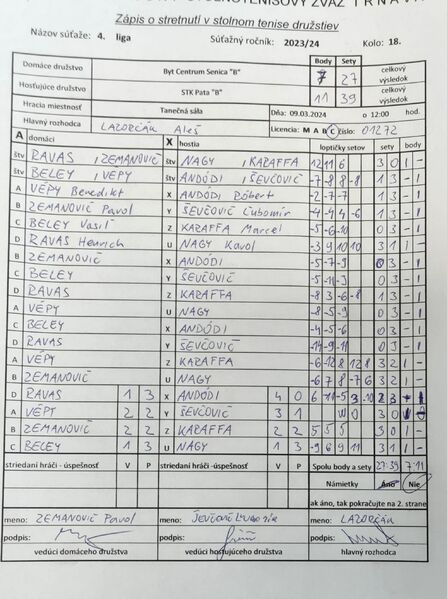 STOLNOTENISOVÝ ZVÄZ TRNAVA
Zápis o stretnutí v stolnom tenise družstiev
Názov súťaže: 4. liga Súťažný ročník: 2023/24 Kolo: 18.
Body Sety
Domáce družstvo Byt Centrum Senica "B" 7 27 celkový výsledok
Hosťujúce družstvo STK Pata "B" 11 39 celkový výsledok
Hracia miestnosť Tanečná sála Dňa: 09.03.2024 o 12:00 hod.
Hlavný rozhodca LAZORČÁK Aleš Licencia: M A B C číslo: 01272
A domáci X hostia loptičky setov sety body
štv RAVAS, ZEMANOVIČ štv NAGY, KARAFFA 12 11 6 3 0 1 -
štv BELEY, VÉPY štv ANDÓDI, ŠEVČOVIČ -7 8 -8 -8 1 3 - 1
A VÉPY Benedikt X ANDÓDI Róbert -2 -7 -7 1 3 - 1
B ZEMANOVIČ Pavol Y ŠEVČOVIČ Ľubomír -4 -4 4 -6 1 3 - 1
C BELEY Vasil Z KARAFFA Marcel -5 -6 -10 0 3 - 1
D RAVAS Henrich U NAGY Karol -3 9 10 10 3 1 1 -
B ZEMANOVIČ X ANDÓDI -5 -7 -9 0 3 - 1
C BELEY Y ŠEVČOVIČ 0 3 - 1
D RAVAS Z KARAFFA -8 3 -6 -8 1 3 - 1
A VÉPY U NAGY -8 -5 -9 0 3 - 1
C BELEY X ANDÓDI -4 -5 -6 0 3 - 1
D RAVAS Y ŠEVČOVIČ -14 -9 -11 0 3 - 1
A VÉPY Z KARAFFA -6 -12 8 12 8 3 2 1 -
B ZEMANOVIČ U NAGY -6 7 8 -7 6 3 2 1 -
D RAVAS 1 3 X ANDÓDI 4 0 6 11 -5 3 -10 2 3
A VÉPY 2 2 Y ŠEVČOVIČ 3 1 W O 3 0
B ZEMANOVIČ 2 2 Z KARAFFA 2 2 5 5 5 3 0 1 -
C BELEY 1 3 U NAGY 1 3 -9 6 9 11 3 1 1 -
striedaní hráči - úspešnosť V P striedaní hráči - úspešnosť V P Spolu body a sety 27:39 7:11
Námietky Áno Nie
ak áno, tak pokračujte na 2. strane
meno: ZEMANOVIČ Pavol meno: ŠEVČOVIČ Ľubomír meno: LAZORČÁK
podpis: podpis: podpis:
vedúci domáceho družstva vedúci hosťujúceho družstva hlavný rozhodca